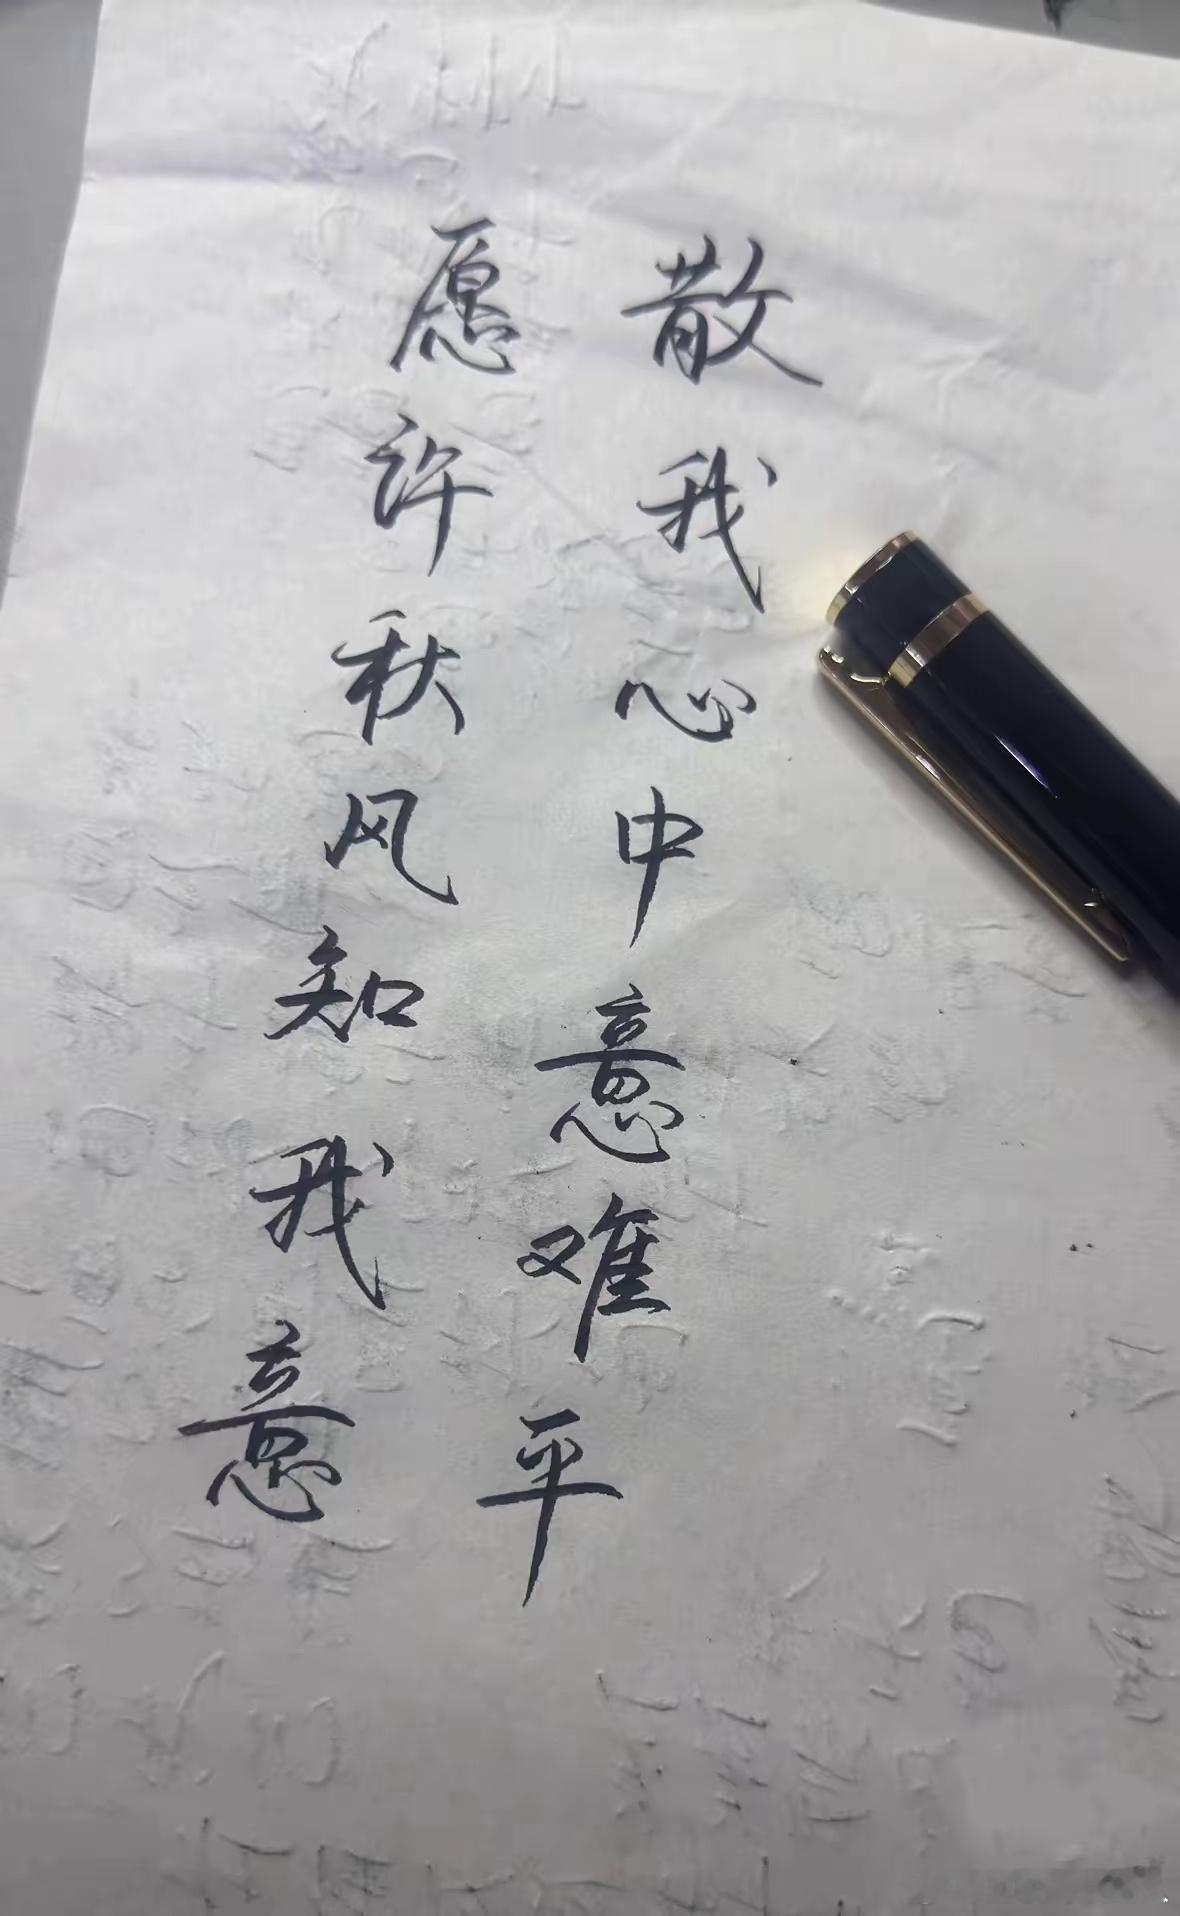 愿许秋风知我意
散我心中意难平